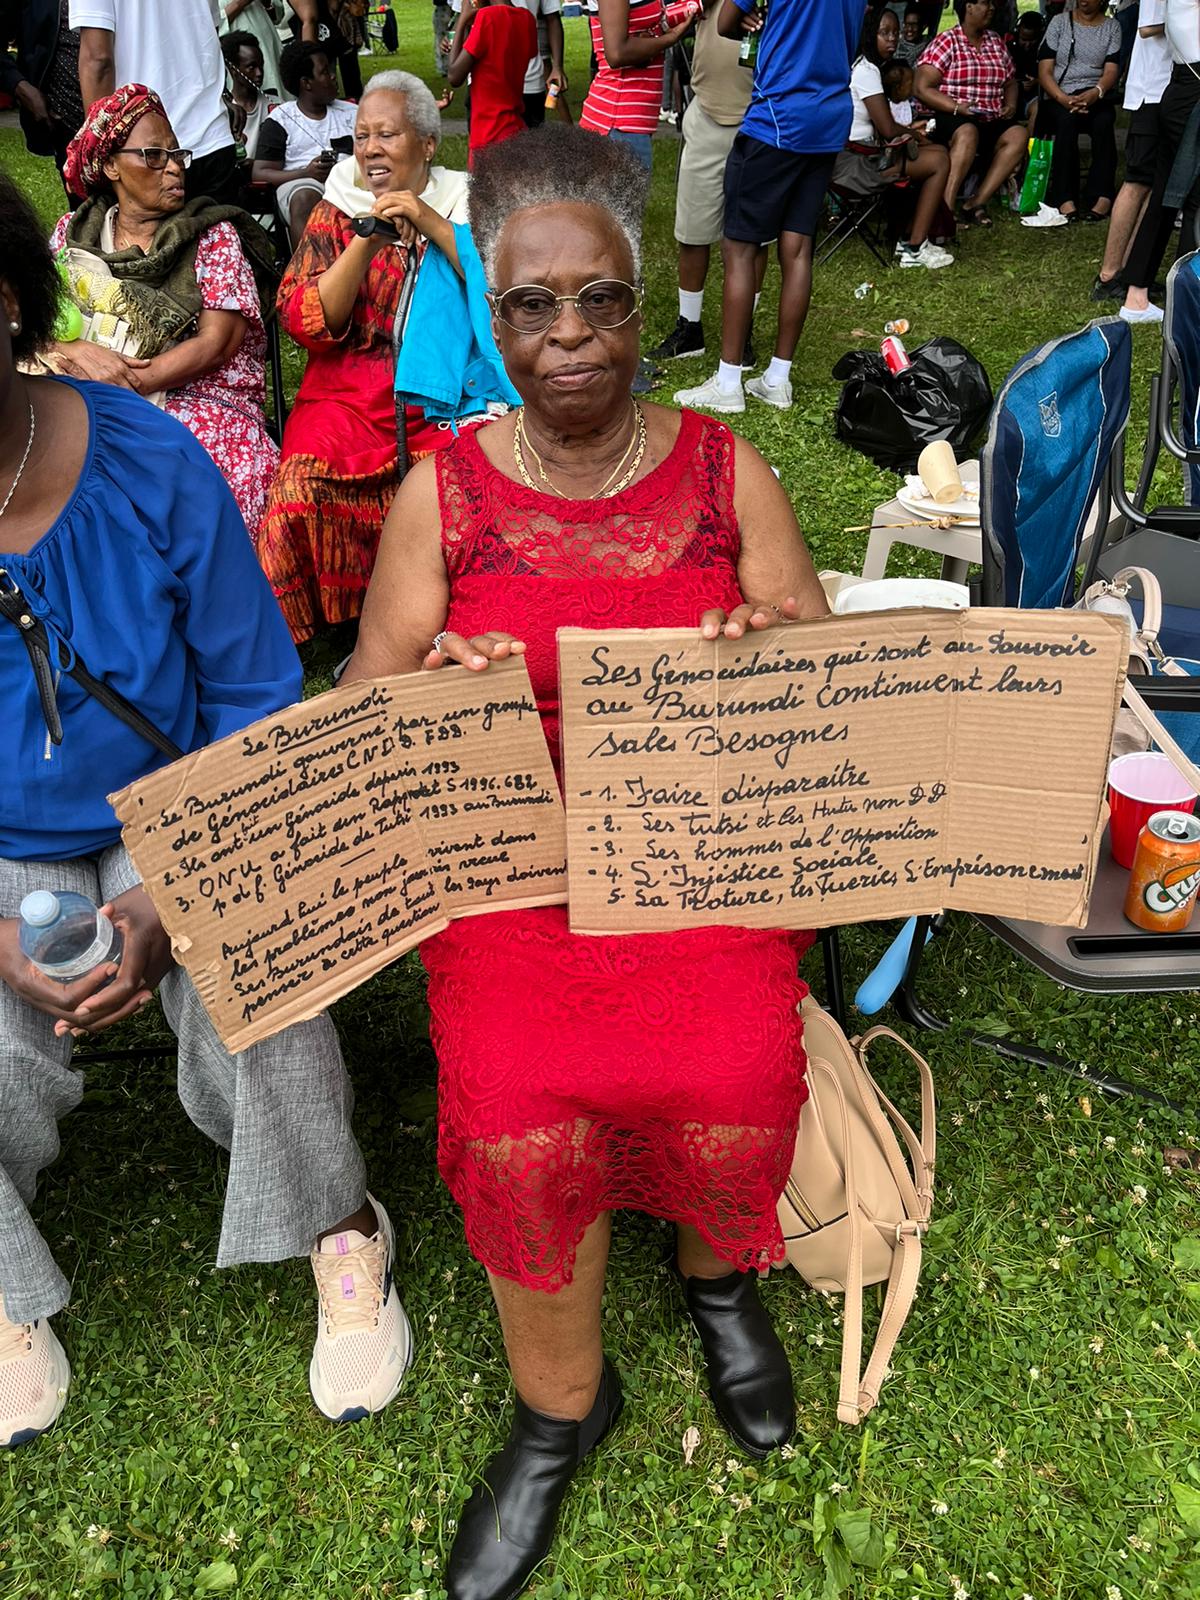 Le Burundi
1. Le Burundi gouverné par un groupe
de Génocidaires C N D D. F.D.D.
2. Ils ont fait un Génoside depuis 1993
3. ONU a fait un Rapport S 1996.682
p df. Génoside de Tutsi 1993 au Burundi
Aujourd'hui le peuple vivent dans
les problèmes non jamais vecue
- Les Burundais de tout les pays doivent
penser à cette question
Les Génocidaires qui sont au Pouvoir
au Burundi Continuent leurs
Sales Besognes
- 1. Faire disparaître
- 2. Les Tutsi et les Hutu non D D
- 3. Les hommes de l'Opposition
- 4. L'Injustice Sociale,
5. La Troture, les Tueries, L'Emprisonement
Crush